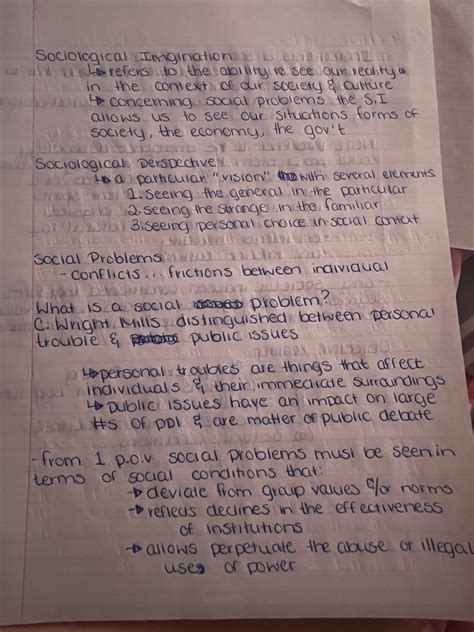 Sociological Imgination
↳ refers to the ability to see our reality
in the context of our society & culture
↳ concerning social problems the S.I
allows us to see our situations forms of
society, the economy, the gov't
Sociological perspective
↳ a particular "vision" with several elements
1. seeing the general in the particular
2. seeing the strange in the familiar
3. seeing personal choice in social context
Social Problems
- conflicts... frictions between individual
What is a social problem?
C. Wright Mills distinguished between personal
trouble & public issues
↳ personal troubles are things that affect
individuals & their immediate surroundings
↳ public issues have an impact on large
#s of ppl & are matter of public debate
- from 1 p.o.v. social problems must be seen in
terms of social conditions that:
→ deviate from group values &/or norms
→ reflects declines in the effectiveness
of institutions
→ allows perpetuate the abuse or illegal
uses of power